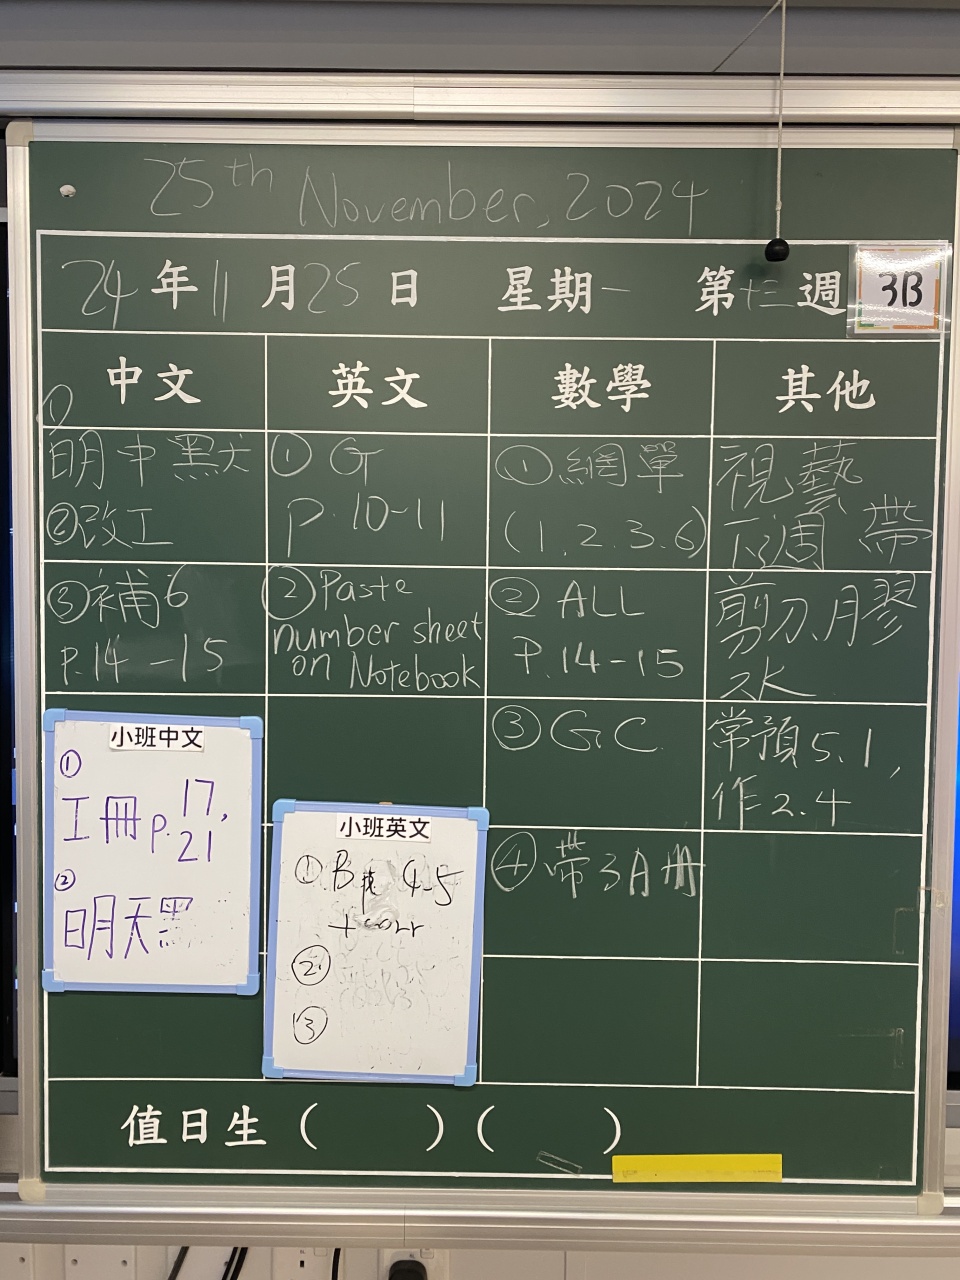 25th November, 2024
24年11月25日 星期一 第十三週 3B
中文
①
明中默
②改工
③補6
P.14-15
英文
① G
p.10-11
②Paste
number sheet
on Notebook
數學
①網單
(1.2.3.6)
② ALL
P.14-15
③ GC
④帶3A冊
其他
視藝
下週帶
剪刀、膠
水
常預5.1,
作2.4
小班中文
①
工冊p.17,
21
②
明天黑
小班英文
① B 4-5
+corr
②
③
值日生 ( ) ( )